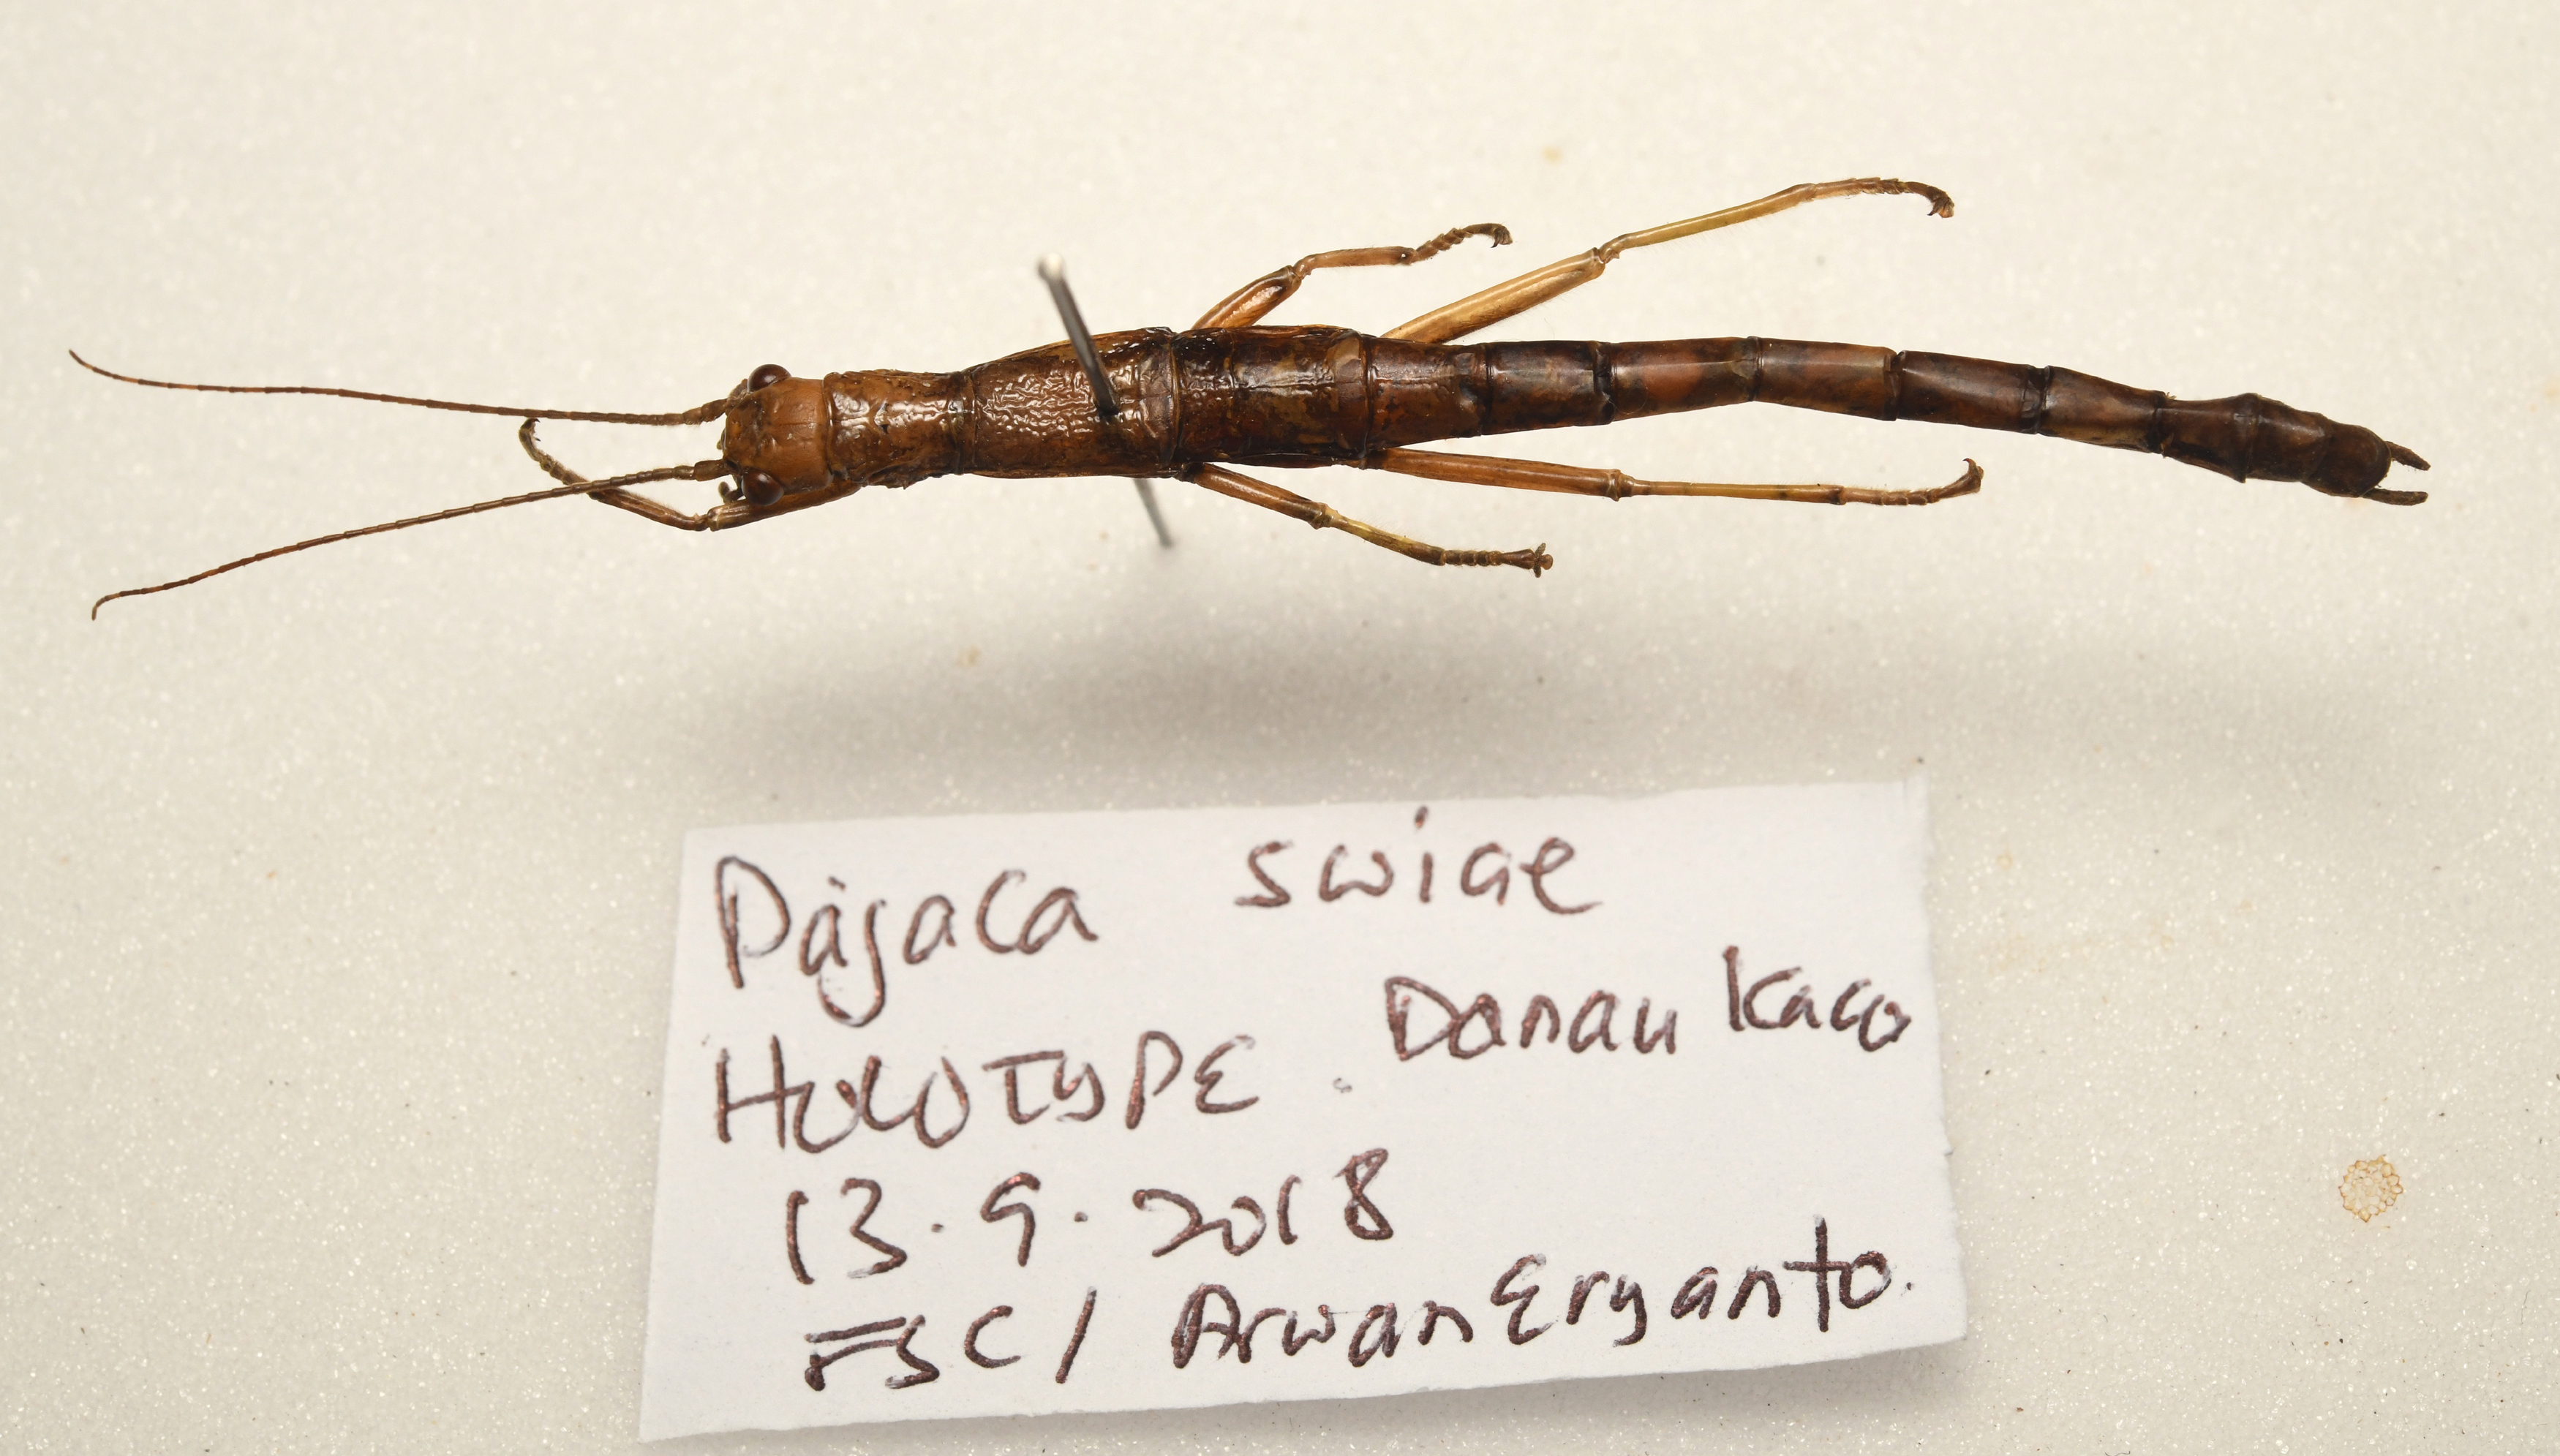 Pajaca swiae
HOLOTYPE. Danau Kaco
13.9.2018
FSC / Arwan Eryanto.